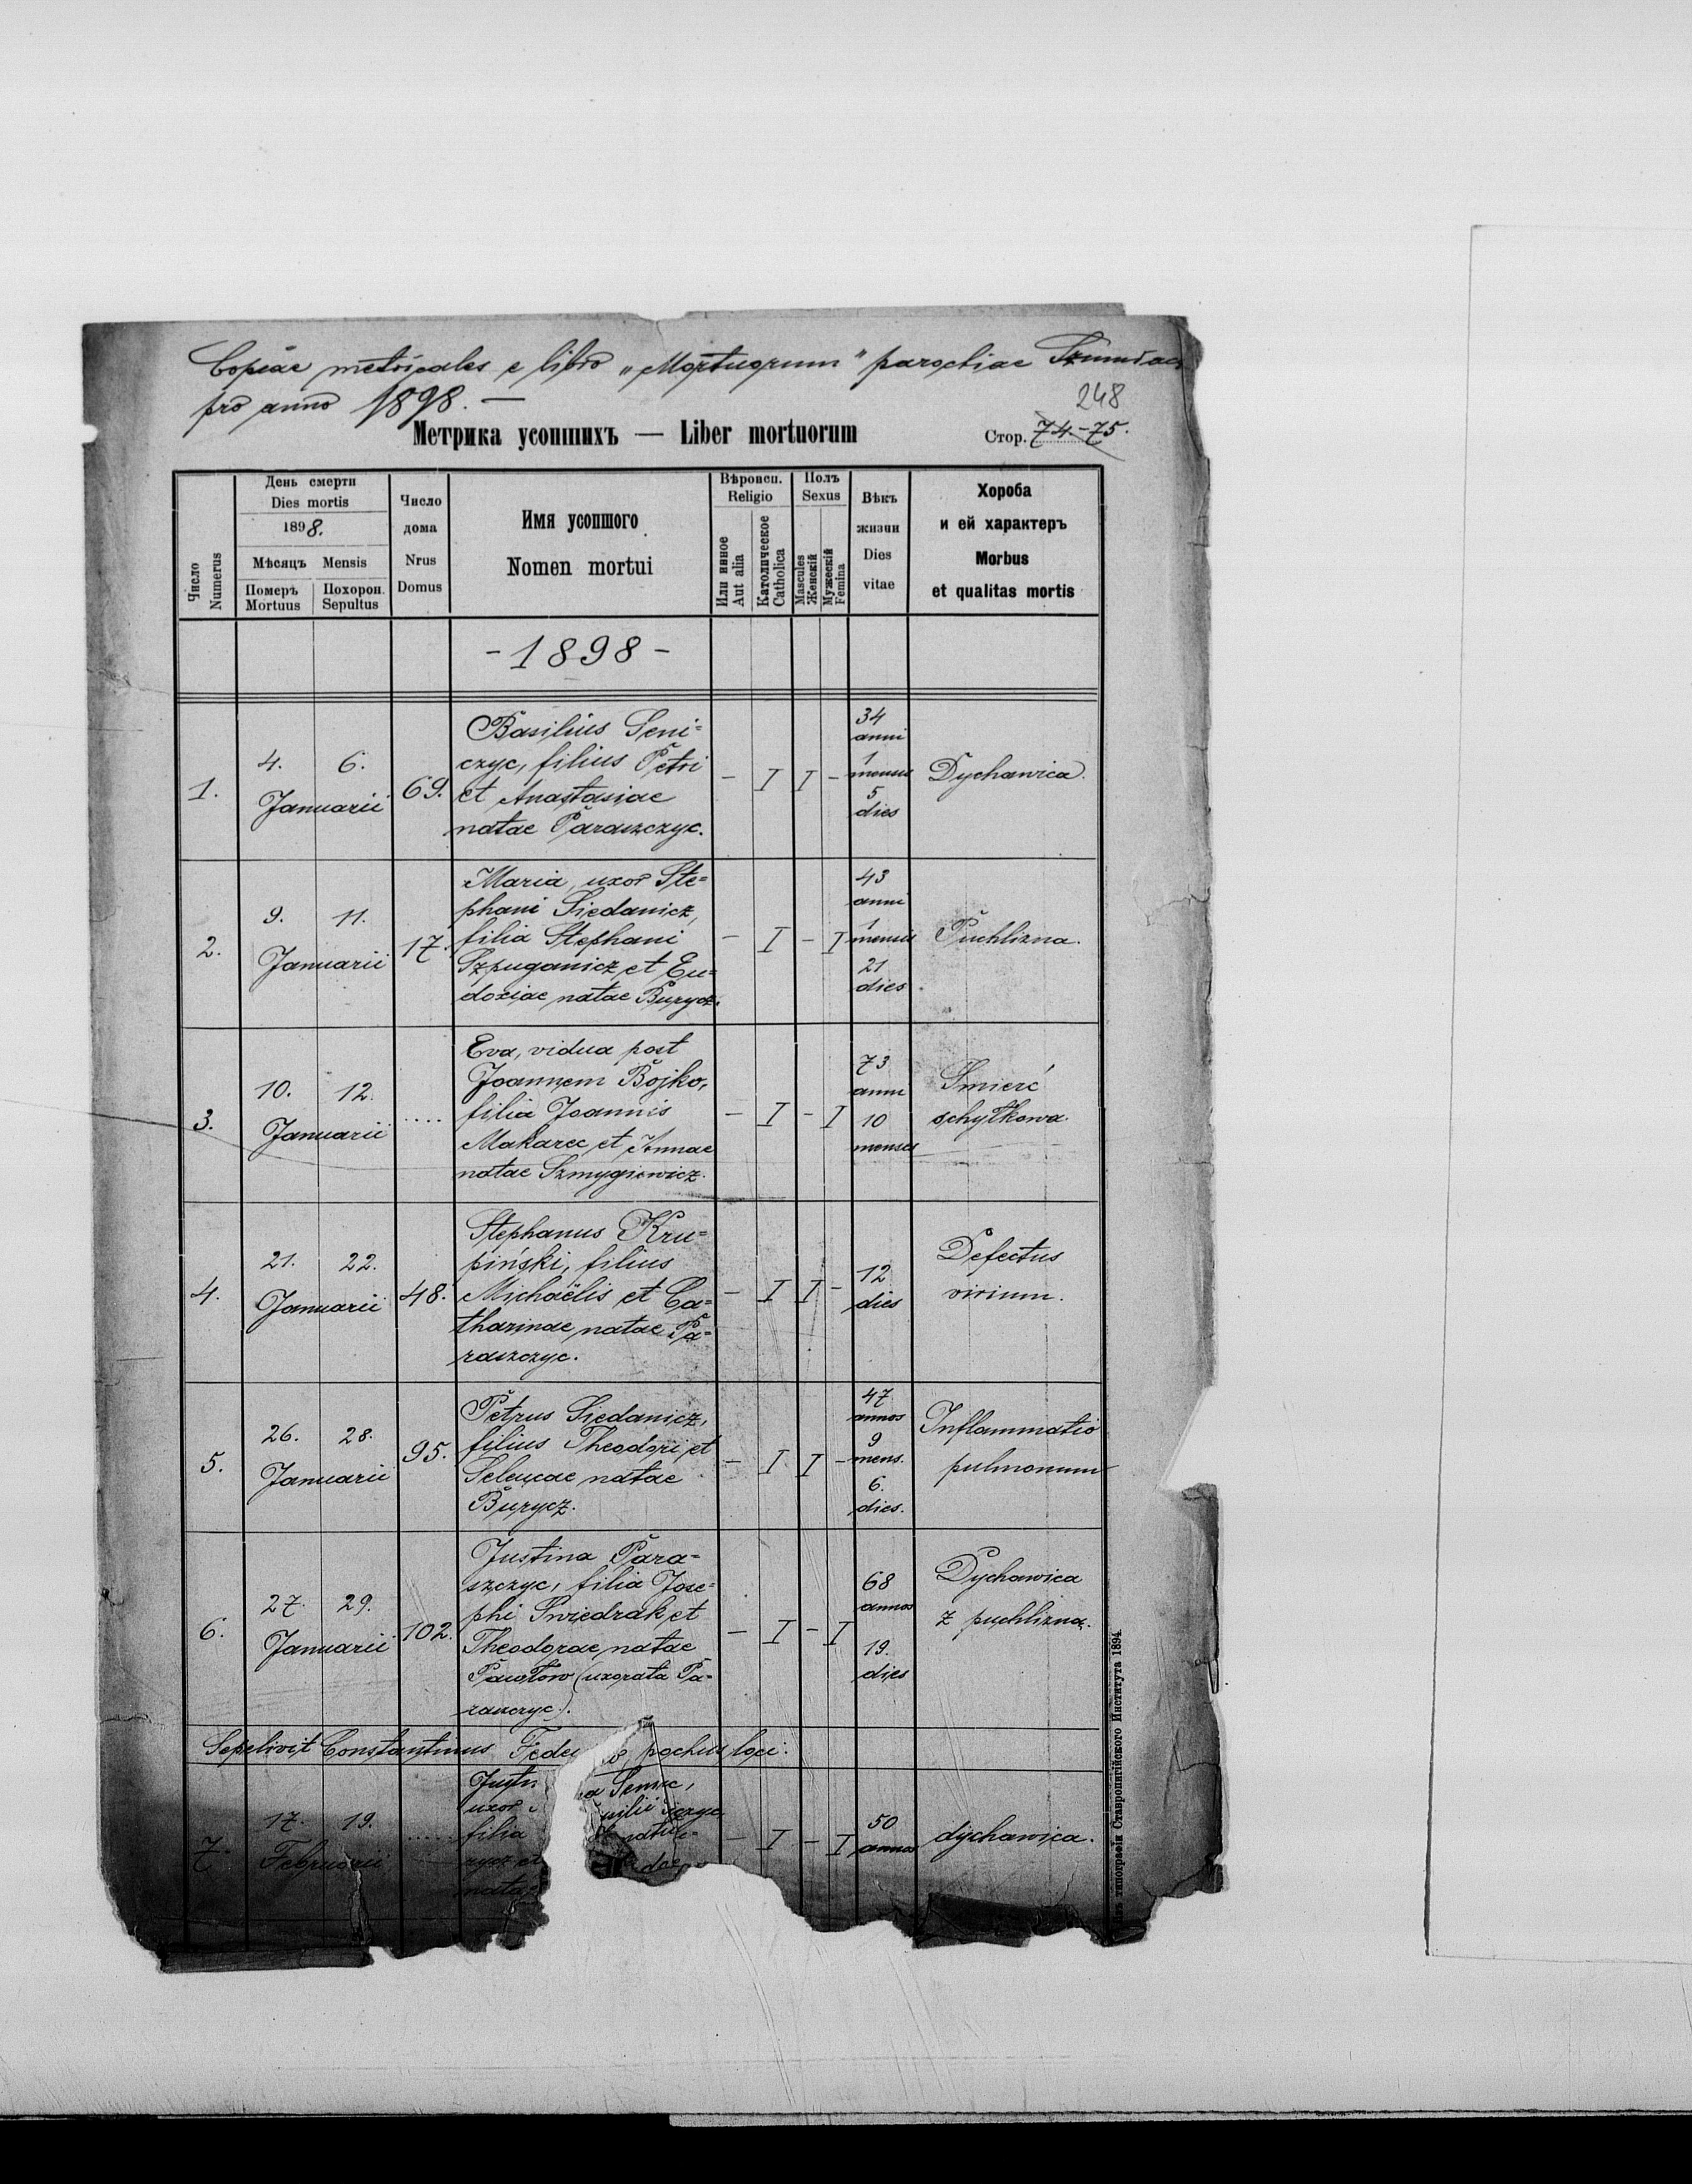 Copiae metricales e libro „Mortuorum" parochiae
pro anno 1898. —
248
Метрика усопшихъ — Liber mortuorum
Стор. 74.-75.
Число
Numerus
День смерти
Dies mortis
1898.
Мѣсяцъ Mensis
Померъ
Mortuus
Похорон.
Sepultus
Число
дома
Nrus
Domus
Имя усопшого
Nomen mortui
Вѣроисп.
Religio
Или инное
Aut alia
Католическое
Catholica
Полъ
Sexus
Mascules
Женскій
Мужескій
Femina
Вѣкъ
жизни
Dies
vitae
Хороба
и ей характеръ
Morbus
et qualitas mortis
- 1898 -
1.
4. 6.
Januarii
69.
Basilius Seni=
czyc, filius Petri
et Anastasiae
natae Paraszczyc.
- I I -
34
anni
1
mensis
5
dies
Dychawica.
2.
9. 11.
Januarii
17.
Maria, uxor Ste=
phani Siedanicz,
filia Stephani
Szpuganicz et Eu=
doxiae natae Burycz.
- I - I
43
anni
1
mensis
21
dies
Puchlizna.
3.
10. 12.
Januarii
....
Eva, vidua post
Joannem Bojko,
filia Joannis
Makarec et Annae
natae Szmygiewicz.
- I - I
73
anni
10
menses
Smierć
schyłkowa.
4.
21. 22.
Januarii
48.
Stephanus Kru=
piński, filius
Michaëlis et Ca=
tharinae natae Pa=
raszczyc.
- I I -
12
dies
Defectus
virium.
5.
26. 28.
Januarii
95.
Petrus Siedanicz,
filius Theodori et
natae
Burycz.
- I I -
47
annos
9
mens.
6.
dies.
Inflammatio
pulmonum
6.
27. 29.
Januarii
102.
Justina Para=
szczyc, filia Jose=
phi Swiedrak et
Theodorae natae
Pawłow (uxorata Pa=
raszczyc).
- I - I
68
annos
19.
dies
Dychawica
z puchlizną.
Sepelivit Constantinus loci.
7.
17. 19.
Februarii
.....
uxor
filia
- I - I
50
annos
dychawica.
типографіи Ставропигійского Института 1894.